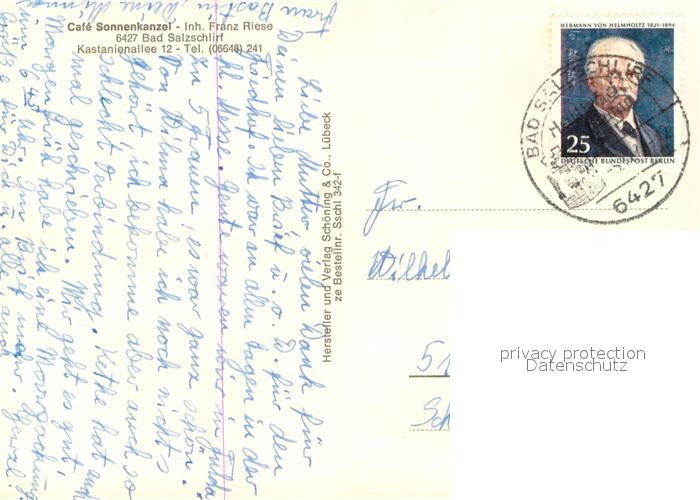 Café Sonnenkanzel - Inh. Franz Riese
6427 Bad Salzschlirf
Kastanienallee 12 - Tel. (06648) 241
HERMANN VON HELMHOLTZ 1821-1894
25
DEUTSCHE BUNDESPOST BERLIN
BAD SALZSCHLIRF
6427
Hersteller und Verlag Schöning & Co., Lübeck
ze Bestellnr. Sschl 342-f
Liebe Mutter vielen Dank für
Deinen lieben Brief u. v. D. für den
Friedhof. Ich war an allen Tagen in der
hl. Messe. Gest. waren wir in Fulda
zu 5 Frauen, es war ganz schön.
Von habe ich noch nichts
gehört, ich bekomme aber auch so
schlecht Verbindung. Käthe hat auch
mal geschrieben. Mir geht es gut,
Morgen früh habe ich eine
um 6 Uhr. Im Brief mehr.
Grüße für Dich u. alle auch
Frau
Fr.
Wilhel
51
Sch
privacy protection
Datenschutz